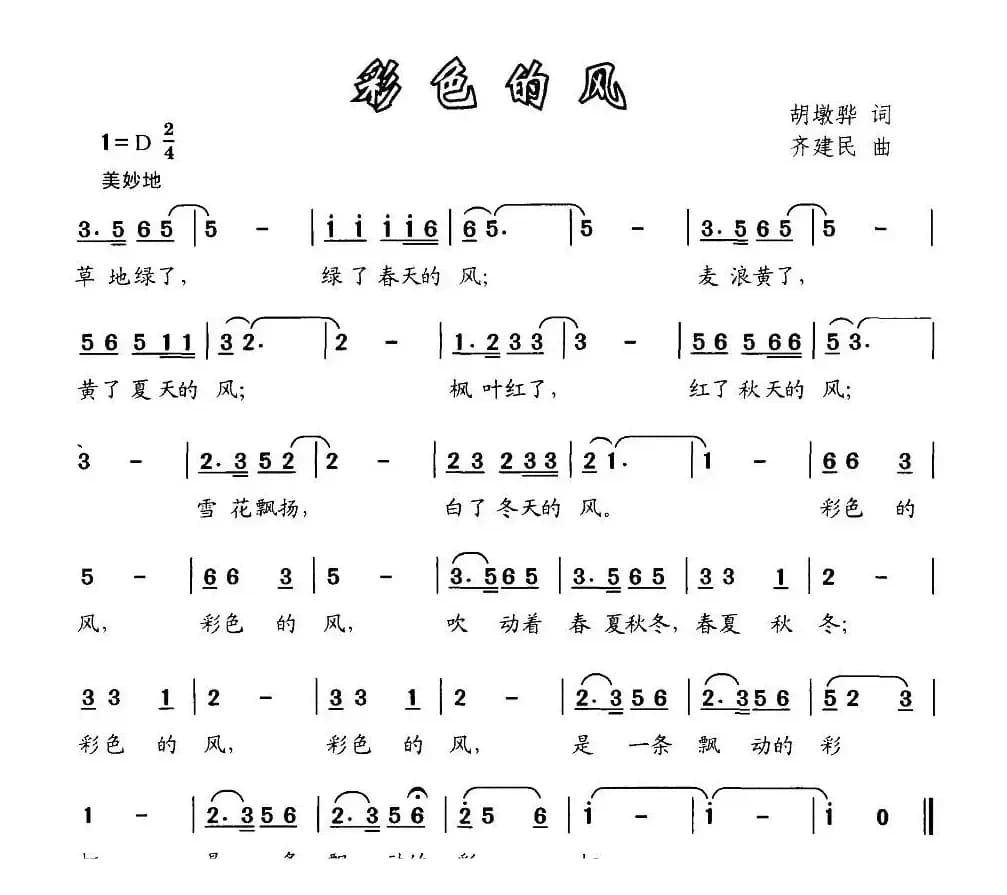 彩色的风
胡墩骅 词
1=D 2/4
齐建民 曲
美妙地
3. 5 6 5 | 5 - | i i i i 6 | 6 5. | 5 - | 3. 5 6 5 | 5 - |
草 地绿了, 绿了春天的 风; 麦 浪黄了,
5 6 5 1 1 | 3 2. | 2 - | 1. 2 3 3 | 3 - | 5 6 5 6 6 | 5 3. |
黄了夏天的 风; 枫 叶红了, 红了秋天的 风;
3 - | 2. 3 5 2 | 2 - | 2 3 2 3 3 | 2 1. | 1 - | 6 6 3 |
雪 花飘扬, 白了冬天的 风。 彩色 的
5 - | 6 6 3 | 5 - | 3. 5 6 5 | 3. 5 6 5 | 3 3 1 | 2 - |
风, 彩色 的 风, 吹 动着 春 夏秋冬, 春夏 秋 冬;
3 3 1 | 2 - | 3 3 1 | 2 - | 2. 3 5 6 | 2. 3 5 6 | 5 2 3 |
彩色 的 风, 彩色 的 风, 是 一条 飘 动的 彩
1 - | 2. 3 5 6 | 2. 3 5 6 | 2 5 6 | i - | i - | i 0 ‖